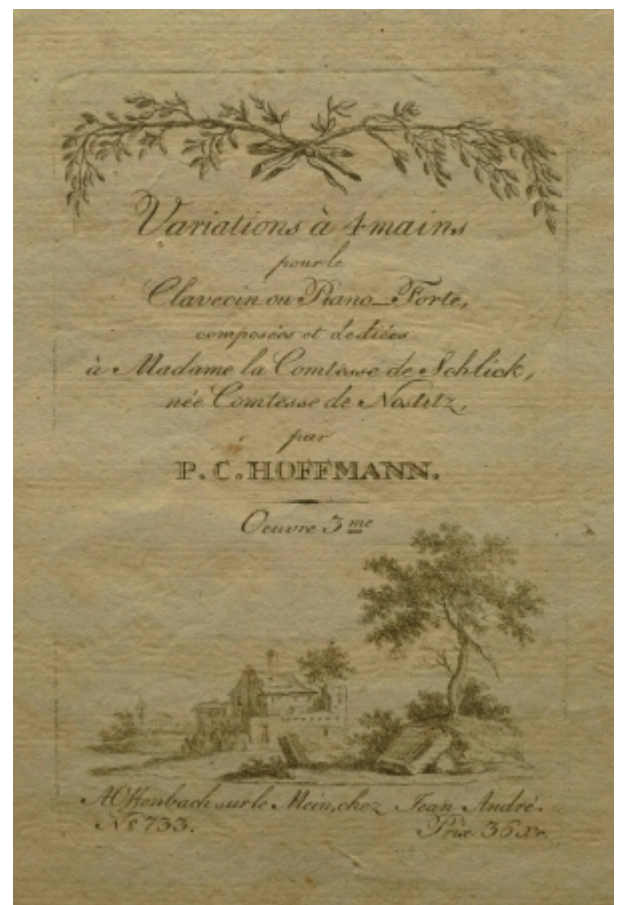 Variations à 4 mains
pour le
Clavecin ou Piano_Forte,
composées et dediées
à Madame la Comtesse de Schlick,
née Comtesse de Nostitz,
par
P. C. HOFFMANN.
Oeuvre 3 me
A Offenbach sur le Mein, chez Jean André.
No 733. Prix 36 Xr.